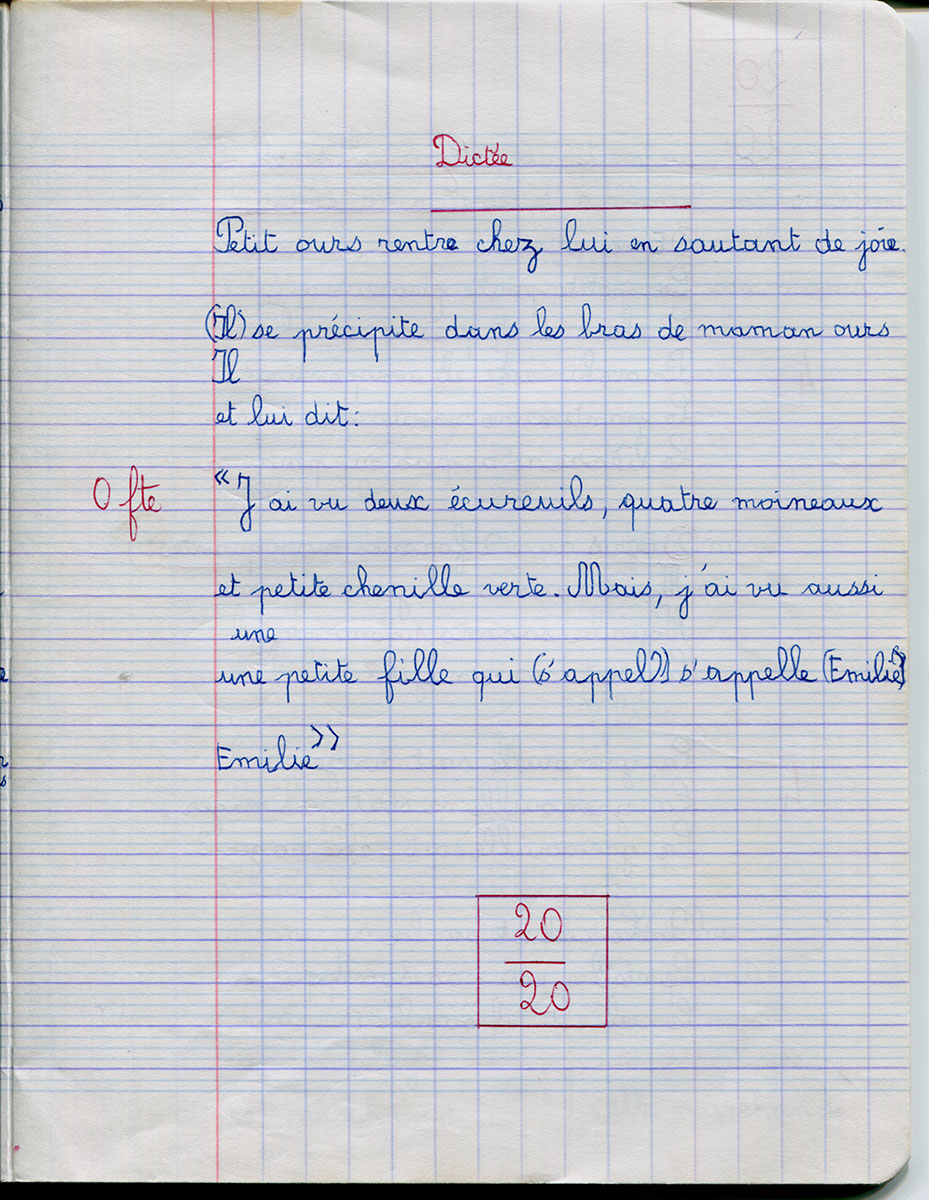 Dictée
Petit ours rentre chez lui en sautant de joie.
(Il) se précipite dans les bras de maman ours
Il
et lui dit:
0 fte
"J'ai vu deux écureuils, quatre moineaux
et petite chenille verte. Mais, j'ai vu aussi
une
une petite fille qui (s'appel?) s'appelle (Emilie)
Emilie"
20
20